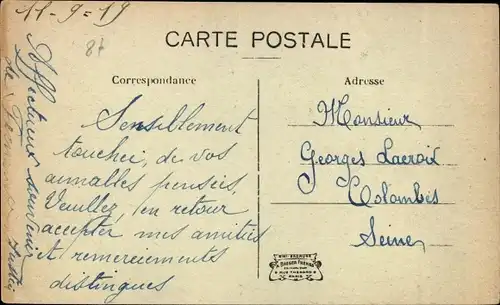 11-9-19
87
CARTE POSTALE
Correspondance
Adresse
Sensiblement
touchée, de vos
aimables pensées,
Veuillez, en retour
accepter mes amitiés
et remerciements
distingués
Affectueux souvenir
de
Monsieur
Georges Lacroix
Colombes
Seine
PARIS